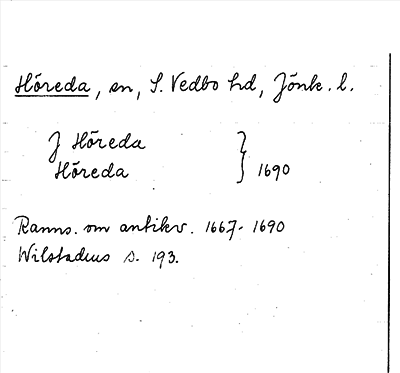 Höreda, sn, S. Vedbo hd, Jönk. l.
J Höreda
Höreda } 1690
Ranns. om antikv. 1667-1690
Wilstadius s. 193.